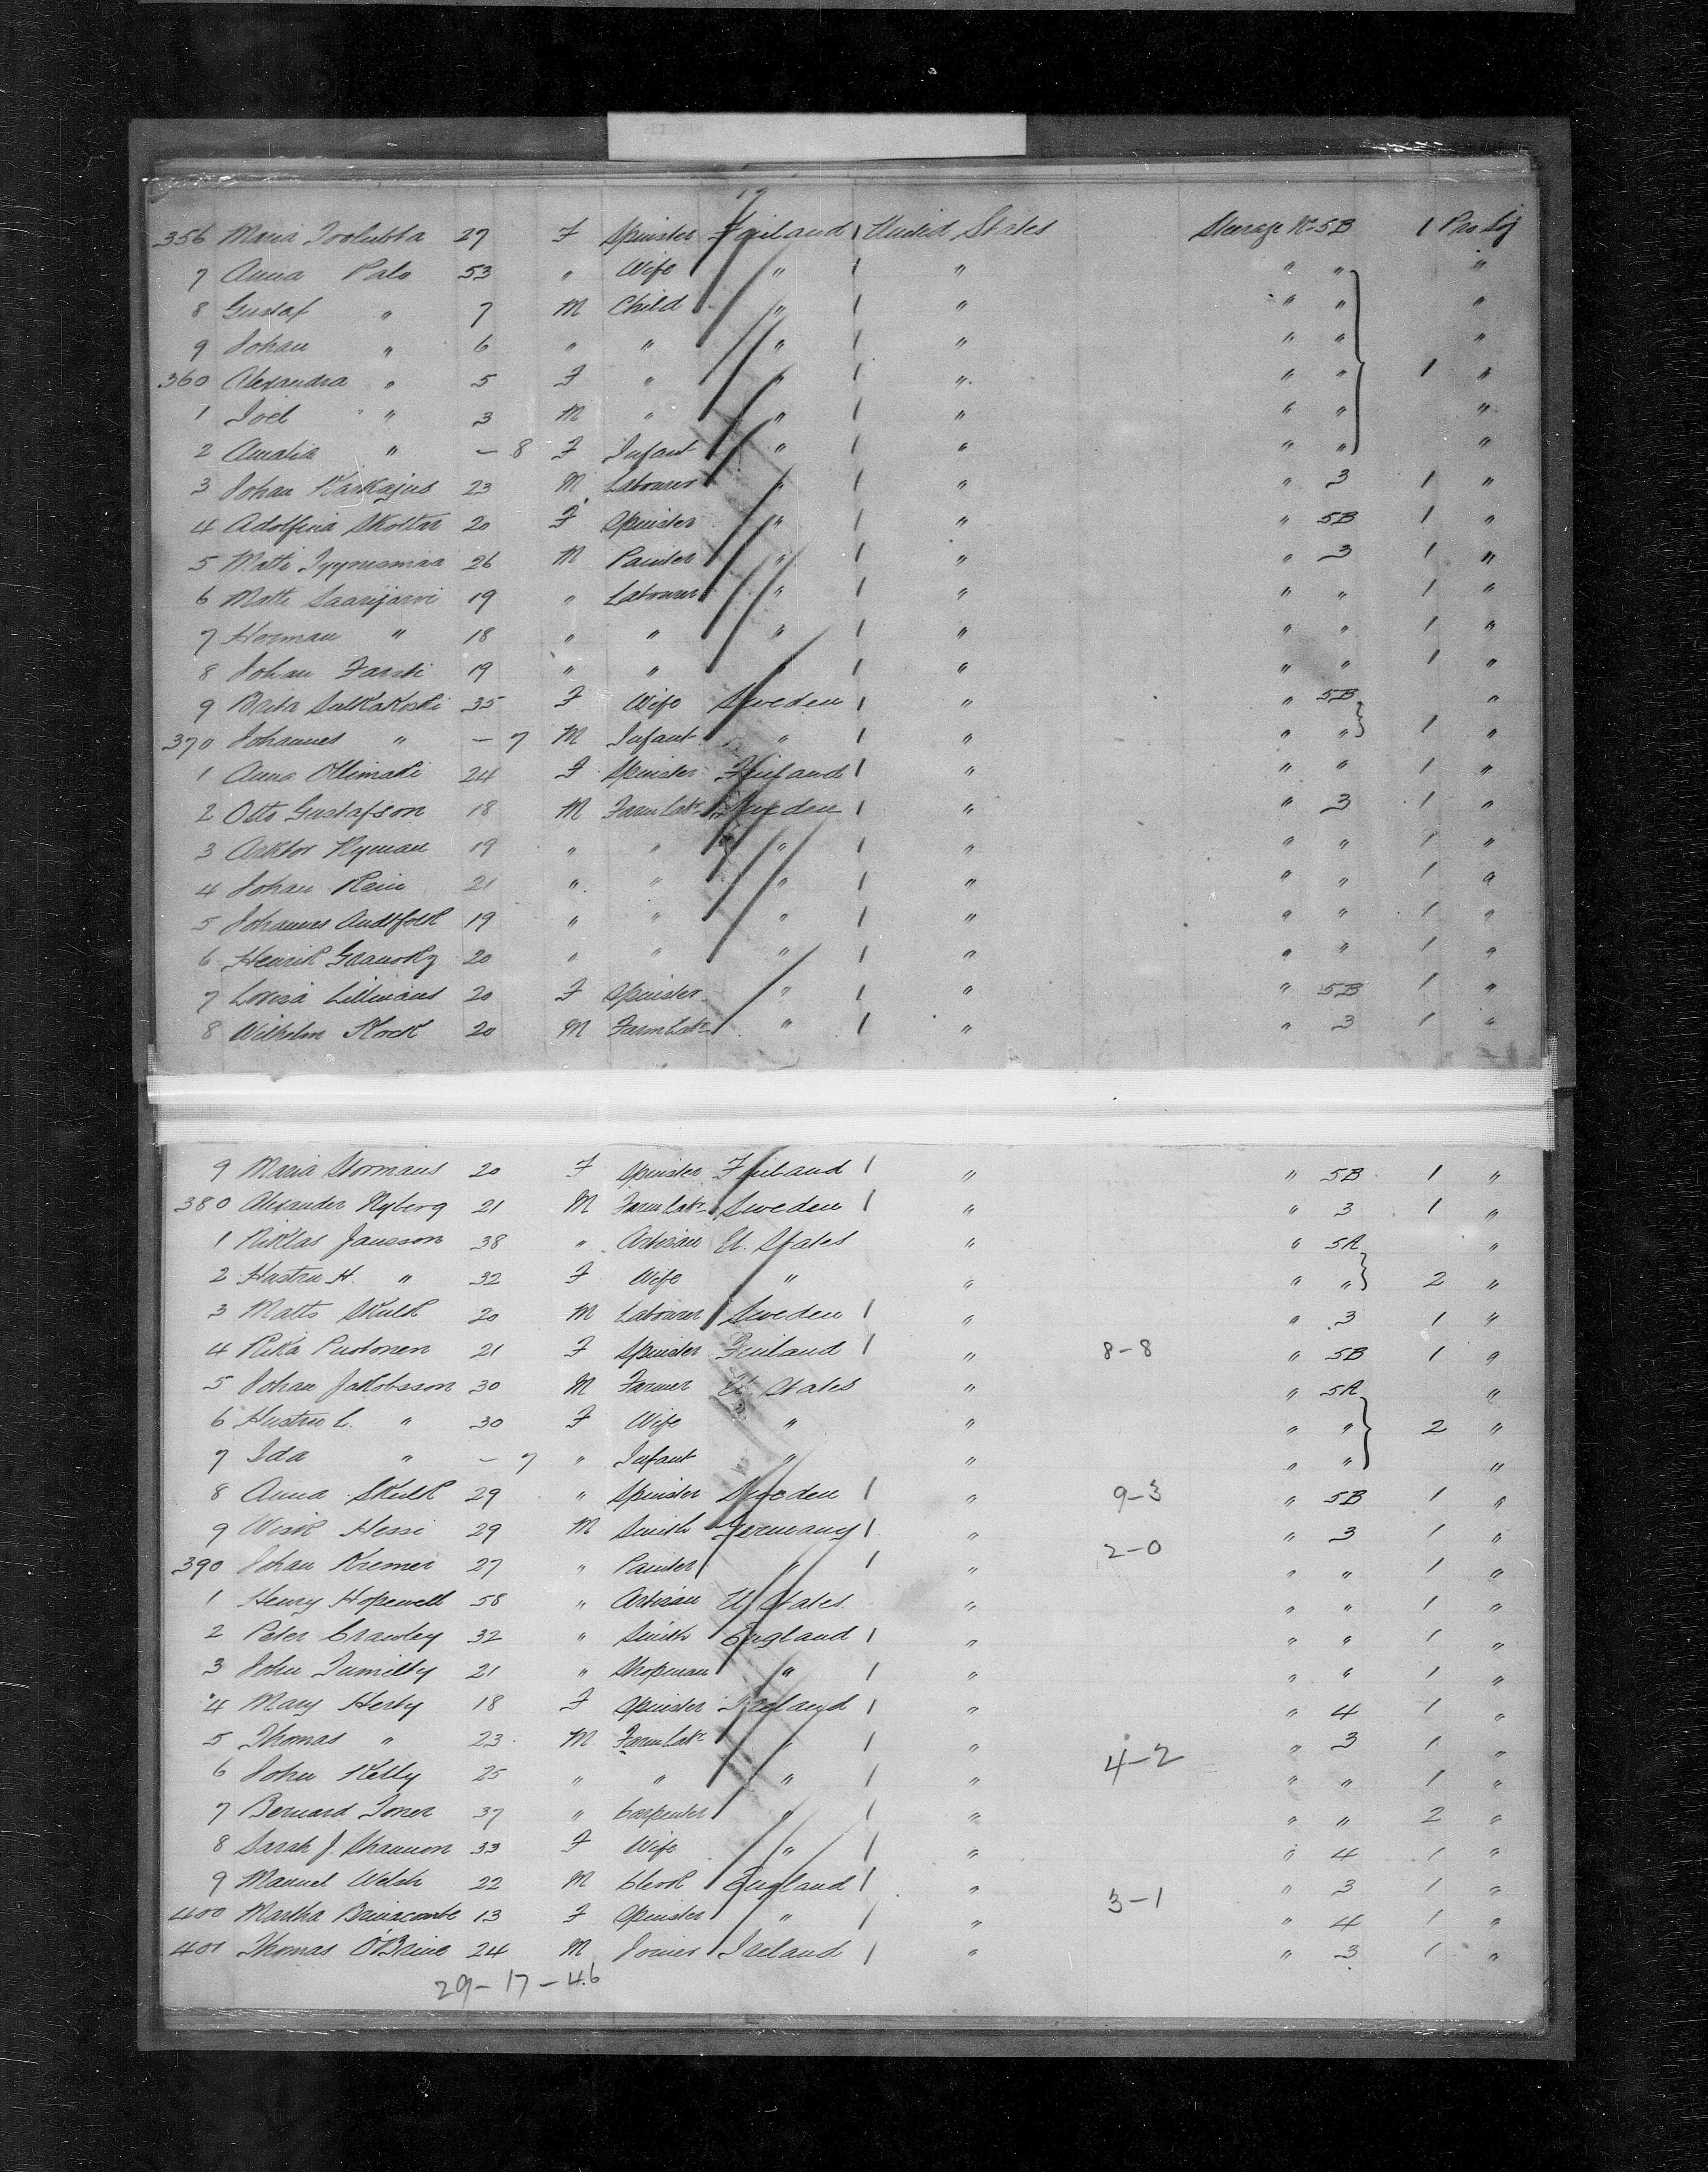 356 Maria 27 F Spinster Finland 1 United States Steerage No 5B 1 Pro Soj
7 Anna Palo 53 " Wife " 1 " " " "
8 Gustaf " 7 M Child " 1 " " " "
9 Johan " 6 " " " 1 " " " "
360 Alexandra " 5 F " " 1 " " " 1 "
1 Joel " 3 M " " 1 " " " "
2 Amalia " - 8 F Infant " 1 " " " "
3 Johan Karkajus 23 M Labourer " 1 " " 3 1 "
4 Adolfina Skoltar 20 F Spinster " 1 " " 5B 1 "
5 Matti 26 M Painter " 1 " " 3 1 "
6 Matti Saarijarvi 19 " Labourer " 1 " " " 1 "
7 Herman " 18 " " " 1 " " " 1 "
8 Johan Farsti 19 " " " 1 " " " 1 "
9 Brita 35 F Wife Sweden 1 " " 5B "
370 Johannes " - 7 M Infant " 1 " " " 1 "
1 Anna Ollimaki 24 F Spinster Finland 1 " " " 1 "
2 Otto Gustafson 18 M Farm Labr Sweden 1 " " 3 1 "
3 Nyman 19 " " " 1 " " " 1 "
4 Johan 21 " " " 1 " " " 1 "
5 Johannes 19 " " " 1 " " " 1 "
6 Henrik 20 " " " 1 " " " 1 "
7 Lovisa Lillmans 20 F Spinster " 1 " " 5B 1 "
8 Wilhelm Klock 20 M Farm Labr " 1 " " 3 1 "
9 Maria Stormans 20 F Spinster Finland 1 " " 5B 1 "
380 Alexander Nyberg 21 M Farm Labr Sweden 1 " " 3 1 "
1 Niklas Jansson 38 " Artisan U. States " " 5A "
2 Hustru H. " 32 F Wife " " " " 2 "
3 Matts Skulk 20 M Labourer Sweden 1 " " 3 1 "
4 21 F Spinster Finland 1 " 8-8 " 5B 1 "
5 Johan Jakobsson 30 M Farmer U. States " " 5A "
6 Hustru L. " 30 F Wife " " " " 2 "
7 Ida " - 7 " Infant " " " " "
8 Anna Skulk 29 " Spinster Sweden 1 " 9-3 " 5B 1 "
9 Hessi 29 M Smith Germany 1 " " 3 1 "
390 Johan Kremer 27 " Painter " 1 " 2-0 " " 1 "
1 Henry Hopewell 58 " Artisan U. States " " " 1 "
2 Peter Crawley 32 " Smith England 1 " " " 1 "
3 John Tumilty 21 " Shopman " 1 " " " 1 "
4 Mary 18 F Spinster Ireland 1 " " 4 1 "
5 Thomas " 23 M Farm Labr " 1 " 4-2 " 3 1 "
6 John Kelly 25 " " " 1 " " " 1 "
7 Bernard Toner 37 " Carpenter " 1 " " " 2 "
8 Sarah J. Shannon 33 F Wife " 1 " " 4 1 "
9 Manuel Welsh 22 M Clerk England 1 " 3-1 " 3 1 "
400 Martha Brinacombe 13 F Spinster " 1 " " 4 1 "
401 Thomas O'Brine 24 M Joiner Ireland 1 " " 3 1 "
29-17-46